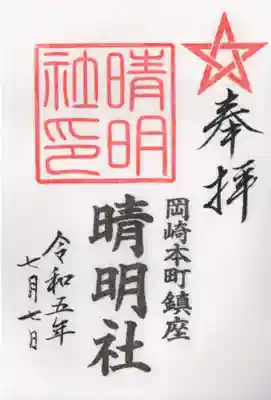 奉拝
岡崎本町鎮座
晴明
社印
晴明社
令和五年
七月七日